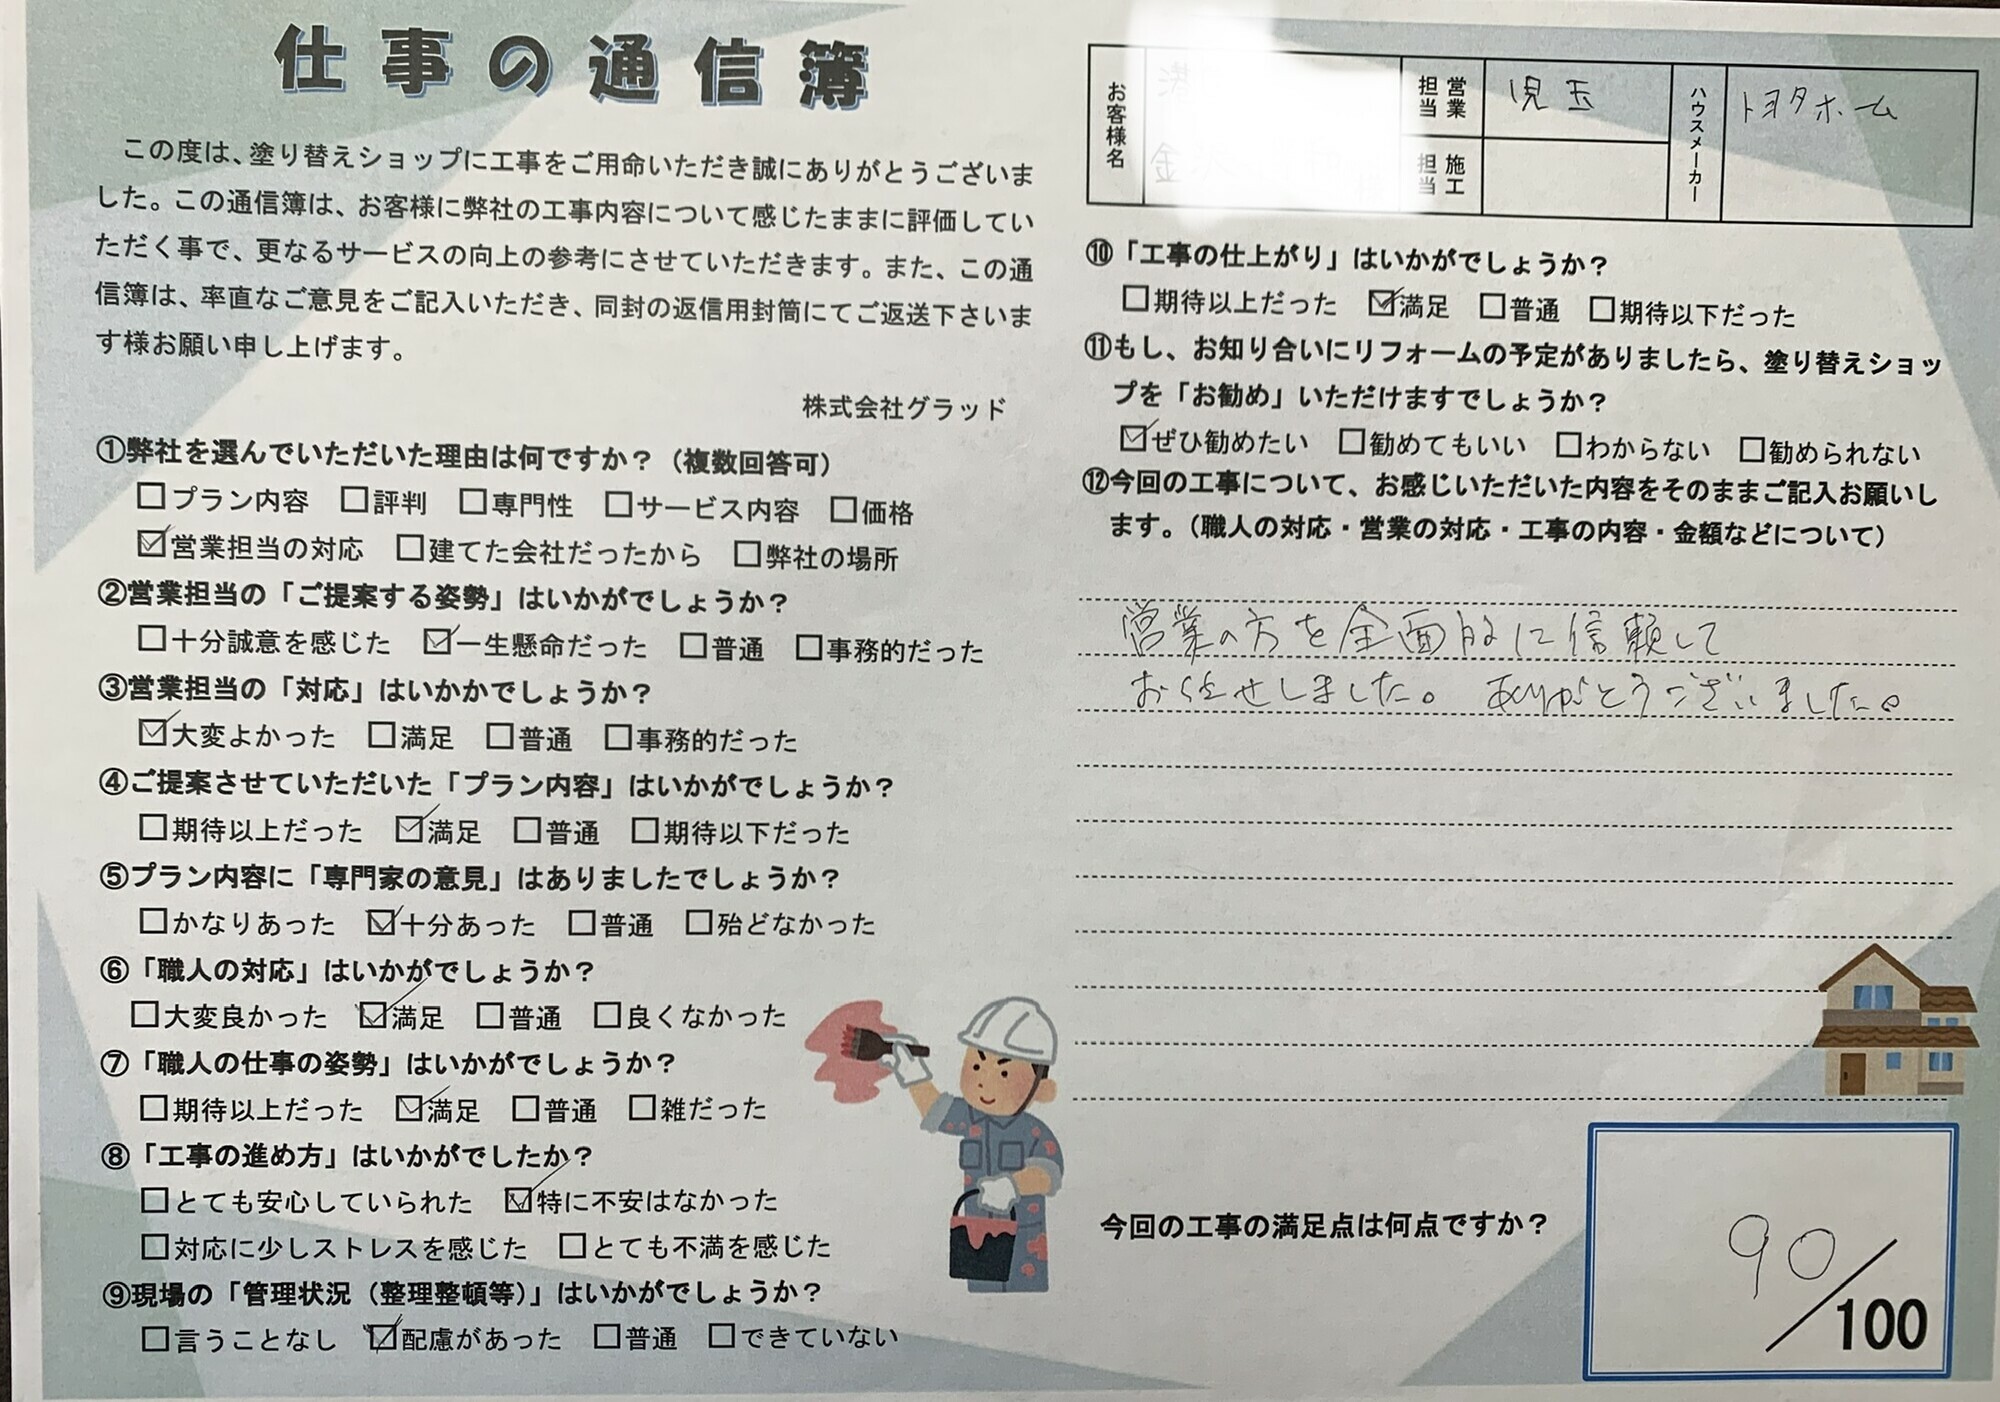 仕事の通信簿
この度は、塗り替えショップに工事をご用命いただき誠にありがとうございま
した。この通信簿は、お客様に弊社の工事内容について感じたままに評価してい
ただく事で、更なるサービスの向上の参考にさせていただきます。また、この通
信簿は、率直なご意見をご記入いただき、同封の返信用封筒にてご返送下さいま
す様お願い申し上げます。
株式会社グラッド
①弊社を選んでいただいた理由は何ですか？（複数回答可）
□プラン内容 □評判 □専門性 □サービス内容 □価格
☑営業担当の対応 □建てた会社だったから □弊社の場所
②営業担当の「ご提案する姿勢」はいかがでしょうか？
□十分誠意を感じた ☑一生懸命だった □普通 □事務的だった
③営業担当の「対応」はいかかでしょうか？
☑大変よかった □満足 □普通 □事務的だった
④ご提案させていただいた「プラン内容」はいかがでしょうか？
□期待以上だった ☑満足 □普通 □期待以下だった
⑤プラン内容に「専門家の意見」はありましたでしょうか？
□かなりあった ☑十分あった □普通 □殆どなかった
⑥「職人の対応」はいかがでしょうか？
□大変良かった ☑満足 □普通 □良くなかった
⑦「職人の仕事の姿勢」はいかがでしょうか？
□期待以上だった ☑満足 □普通 □雑だった
⑧「工事の進め方」はいかがでしたか？
□とても安心していられた ☑特に不安はなかった
□対応に少しストレスを感じた □とても不満を感じた
⑨現場の「管理状況（整理整頓等）」はいかがでしょうか？
□言うことなし ☑配慮があった □普通 □できていない
お客様名
営業担当 児玉
施工担当
ハウスメーカー トヨタホーム
⑩「工事の仕上がり」はいかがでしょうか？
□期待以上だった ☑満足 □普通 □期待以下だった
⑪もし、お知り合いにリフォームの予定がありましたら、塗り替えショッ
プを「お勧め」いただけますでしょうか？
☑ぜひ勧めたい □勧めてもいい □わからない □勧められない
⑫今回の工事について、お感じいただいた内容をそのままご記入お願いし
ます。（職人の対応・営業の対応・工事の内容・金額などについて）
営業の方を全面的に信頼して
お任せしました。 ありがとうございました。
今回の工事の満足点は何点ですか？
90/100